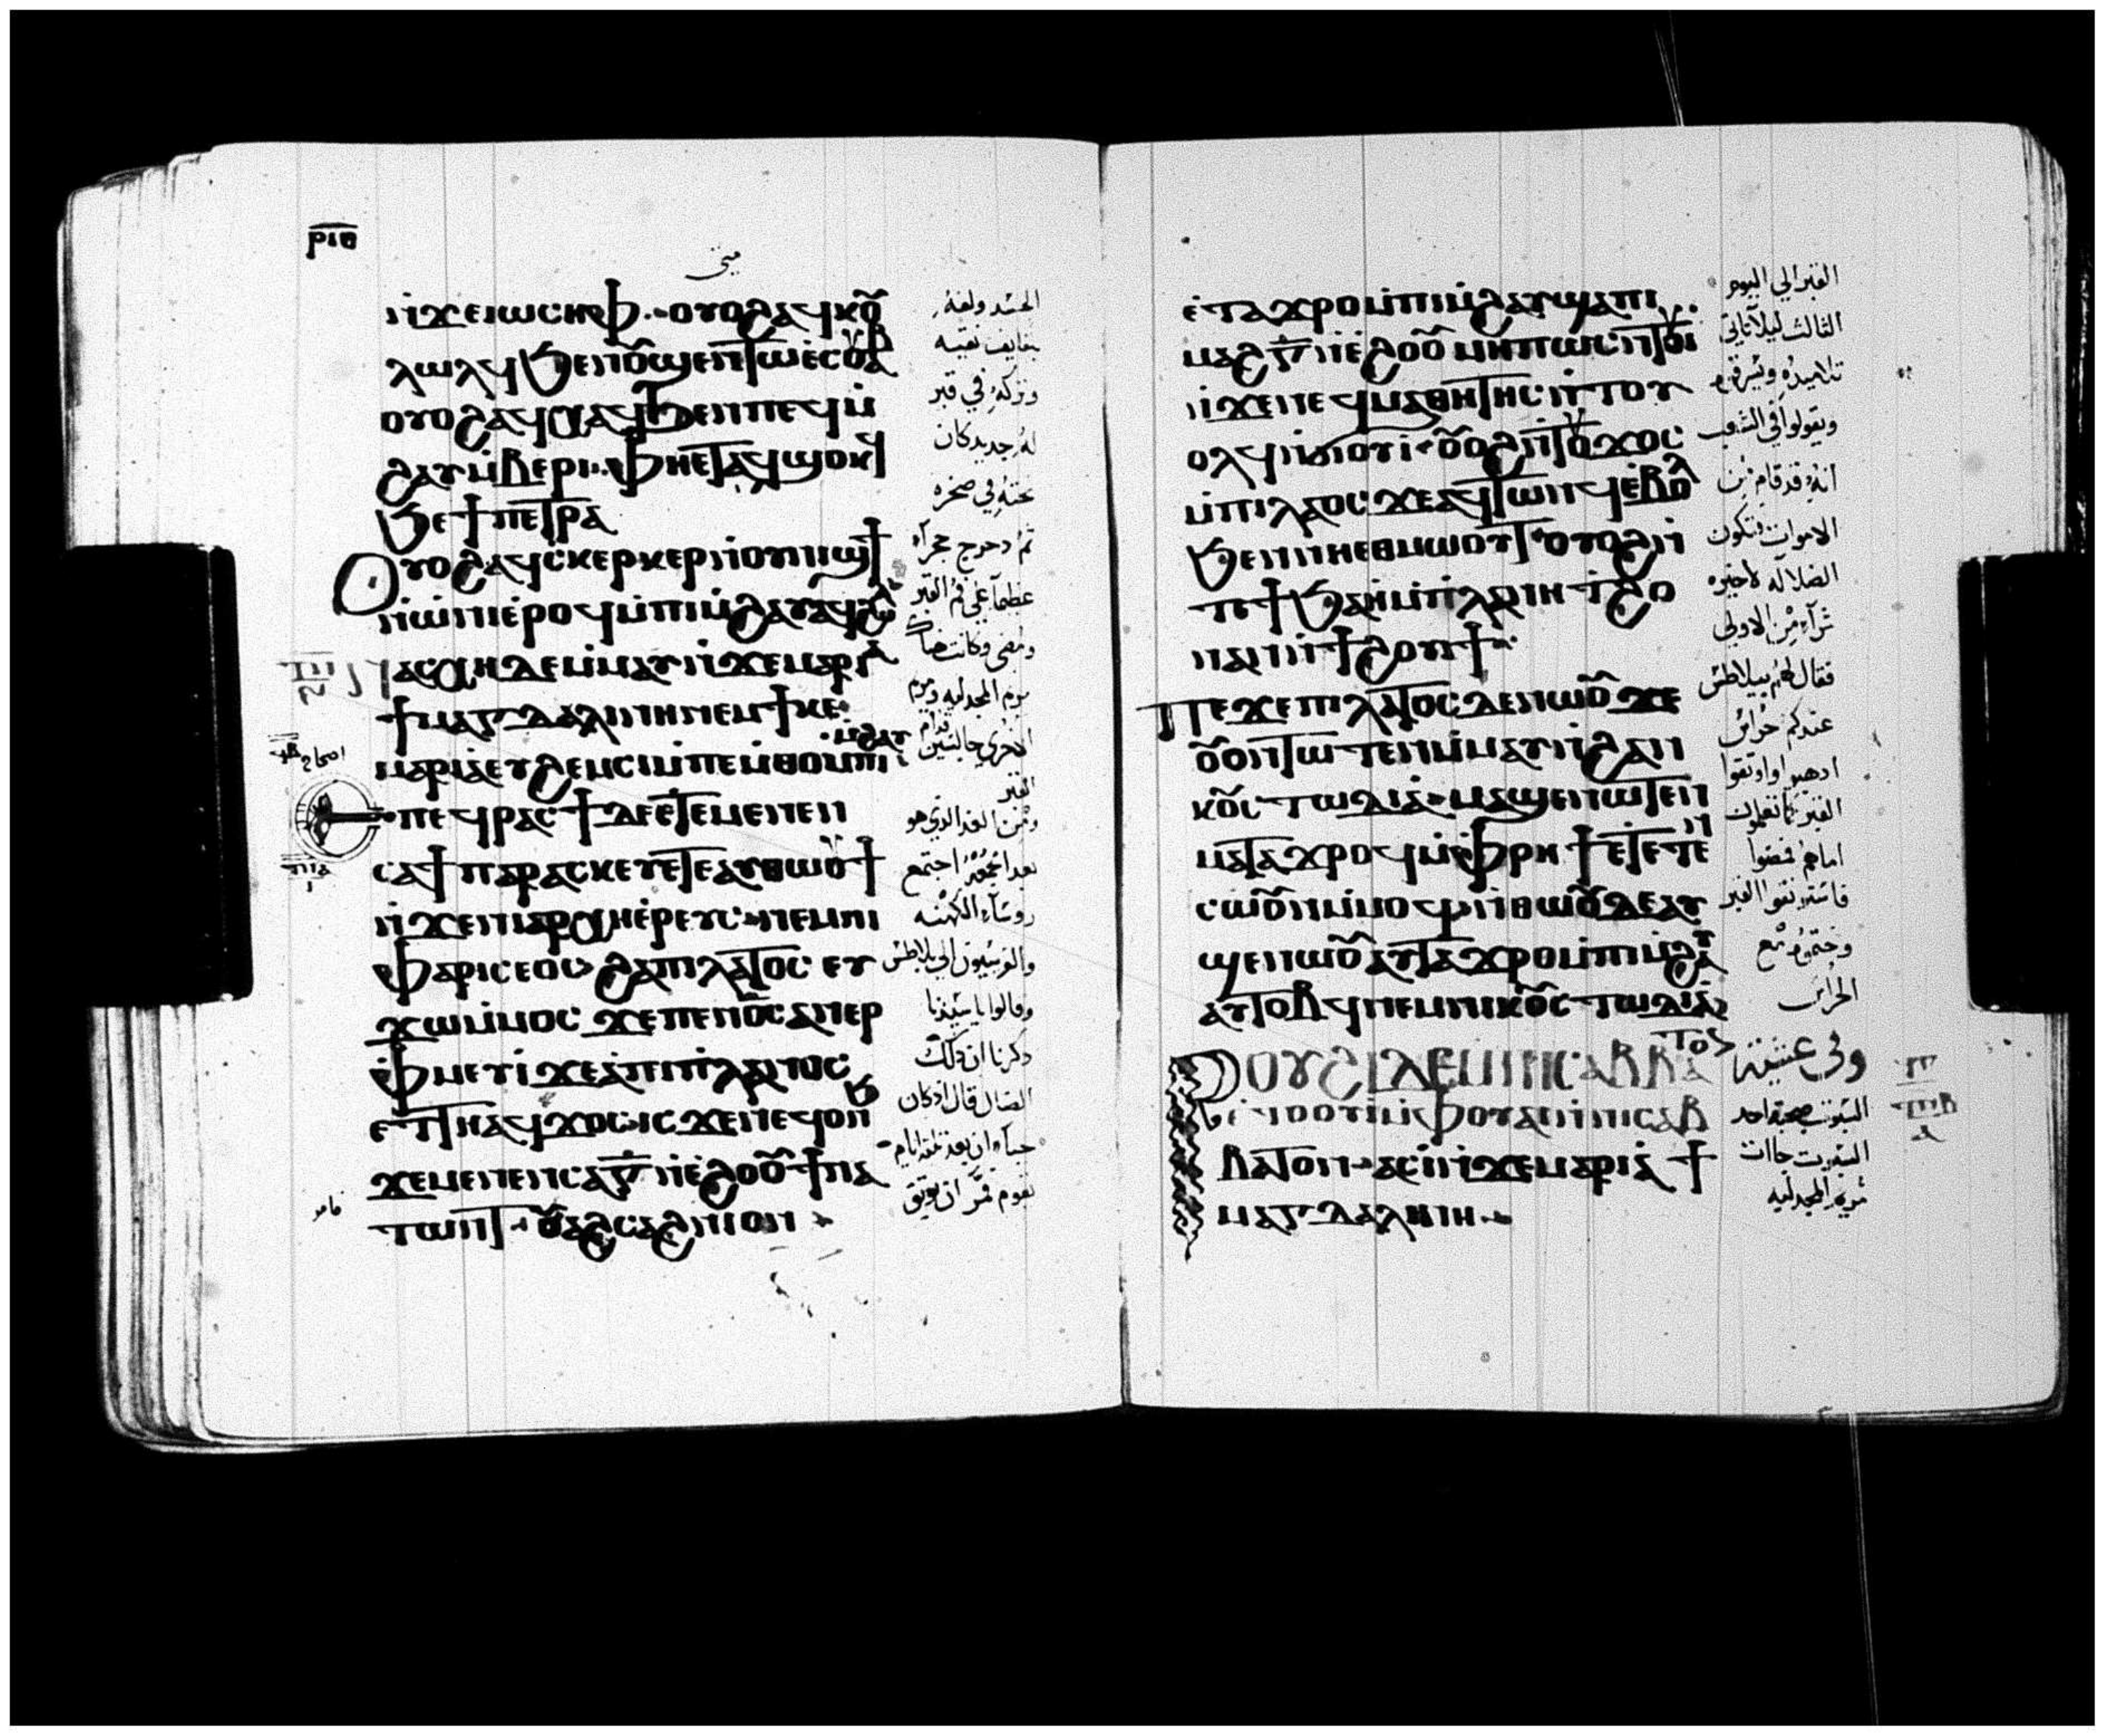 ⲣⲓⲑ
متى
ⲛ̀ϫⲉⲓⲱⲥⲏⲫ · ⲟⲩⲟϩ ⲁϥⲕⲟⲩ
ⲗⲱⲗϥ ϧⲉⲛⲟⲩϣⲉⲛⲧⲱ ⲉ̀ⲥⲟⲩⲁⲃ
ⲟⲩⲟϩ ⲁϥⲭⲁϥ ϧⲉⲛ ⲡⲉϥⲙ̀
ϩⲁⲩ ⲙ̀ⲃⲉⲣⲓ · ⲫⲏⲉⲧⲁϥϣⲟⲕϥ
ϧⲉ ϯⲡⲉⲧⲣⲁ
ⲟⲩⲟϩ ⲁϥⲥⲕⲉⲣⲕⲉⲣ ⲛ̀ⲟⲩⲛⲓϣϯ
ⲛ̀ⲱⲛⲓ ⲉ̀ⲣⲟϥ ⲙ̀ⲡⲓⲙ̀ϩⲁⲩ
ⲛⲁⲥⲭⲏ ⲇⲉ ⲙ̀ⲙⲁⲩ ⲛ̀ϫⲉ ⲙⲁⲣⲓⲁ
ϯⲙⲁⲅⲇⲁⲗⲓⲛⲏ ⲛⲉⲙ ϯⲕⲉ
ⲙⲁⲣⲓⲁ ⲉⲩϩⲉⲙⲥⲓ ⲙ̀ⲡⲉⲙ̀ⲑⲟ ⲙ̀ⲡⲓⲙ̀ϩⲁⲩ
ⲡⲉϥⲣⲁⲥϯ ⲇⲉ ⲉⲧⲉ ⲙⲉⲛⲉⲛ
ⲥⲁ ϯⲡⲁⲣⲁⲥⲕⲉⲩⲉ ⲧⲉ ⲁⲩⲑⲱⲟⲩϯ
ⲛ̀ϫⲉ ⲛⲓⲁⲣⲭⲏⲉ̀ⲣⲉⲩⲥ · ⲛⲉⲙ ⲛⲓ
ⲫⲁⲣⲓⲥⲉⲟⲥ ϩⲁ ⲡⲓⲗⲁⲧⲟⲥ ⲉⲩ
ϫⲱ ⲙ̀ⲙⲟⲥ ϫⲉ ⲡⲉⲛⲟ̅ⲥ̅ ⲁⲛⲉⲣ
ⲫ̀ⲙⲉⲩⲓ̀ ϫⲉ ⲁ̀ ⲡⲓⲡ̀ⲗⲁⲛⲟⲥ
ⲉⲧⲧⲏ ⲁϥϫⲟⲥ ⲓⲥϫⲉⲛ ⲉϥⲟⲛϧ
ϫⲉ ⲙⲉⲛⲉⲛⲥⲁ ⲅ̅ ⲛ̀ⲉ̀ϩⲟⲟⲩ ϯⲛⲁ
ⲧⲱⲛⲧ · ⲟⲩⲁϩⲥⲁϩⲛⲓ ⲟⲩⲛ
الجسد ولفه
بلفايف نقيه
وتركه في قبر
له جديد كان
نحته في صخره
ثم دحرج حجراً
عظيماً على فم القبر
ومضى وكانت هناك
مريم المجدليه ومريم
الاخرى جالستين قدام
القبر
ومن الغد الذي هو
بعد الجمعه اجتمع
روساء الكهنه
والفريسيون الى بيلاطس
وقالوا يا سيدنا
ذكرنا ان ذلك
الضال قال اذ كان
حياً ان بعد ثلثة ايام
اقوم فمر ان يوثق
فامر
ⲉ̀ⲧⲁϫⲣⲟ ⲙ̀ⲡⲓⲙ̀ϩⲁⲩ ϣⲁ ⲡⲓ
ⲙⲁϩ ⲅ̅ ⲛ̀ⲉ̀ϩⲟⲟⲩ ⲙⲏⲡⲱⲥ ⲛ̀ⲧⲟⲩⲓ̀
ⲛ̀ϫⲉ ⲛⲉϥⲙⲁⲑⲏⲧⲏⲥ ⲛ̀ⲧⲟⲩ
ⲟⲗϥ ⲛ̀ϭⲓⲟⲩⲓ̀ · ⲟⲩⲟϩ ⲛ̀ⲧⲟⲩϫⲟⲥ
ⲙ̀ⲡⲓⲗⲁⲟⲥ ϫⲉ ⲁϥⲧⲱⲛϥ ⲉ̀ⲃⲟⲗ
ϧⲉⲛ ⲛⲏⲉⲑⲙⲱⲟⲩⲧ · ⲟⲩⲟϩ ⲛ̀
ⲧⲉ ϯϧⲁⲏ̀ ⲙ̀ⲡ̀ⲗⲁⲛⲏ ⲧ̀ϩⲟ
ⲛⲁⲓ ⲛⲓ ϯϩⲟⲩⲓϯ ·
ⲡⲉϫⲉ ⲡⲓⲗⲁⲧⲟⲥ ⲇⲉ ⲛⲱⲟⲩ ϫⲉ
ⲟⲩⲟⲛⲧⲱⲧⲉⲛ ⲙ̀ⲙⲁⲩ ⲛ̀ϩⲁⲛ
ⲕⲟⲩⲥⲧⲱⲇⲓⲁ · ⲙⲁϣⲉⲛⲱⲧⲉⲛ
ⲙⲁⲧⲁϫⲣⲟϥ ⲙ̀ⲫⲣⲏϯ ⲉⲧⲉⲧⲉⲛ
ⲥⲱⲟⲩⲛ ⲙ̀ⲙⲟϥ · ⲛ̀ⲑⲱⲟⲩ ⲇⲉ ⲁⲩ
ϣⲉⲛⲱⲟⲩ ⲁⲩⲧⲁϫⲣⲟ ⲙ̀ⲡⲓⲙ̀ϩⲁⲩ
ⲁⲩⲧⲟⲃϥ ⲛⲉⲙ ⲛⲓⲕⲟⲩⲥⲧⲱⲇⲓⲁ
ⲣⲟⲩϩⲓ ⲇⲉ ⲛ̀ⲛⲓⲥⲁⲃⲃⲁⲧⲟⲛ
ⲫⲟⲩⲁⲓ ⲛ̀ⲛⲓⲥⲁⲃ
ⲃⲁⲧⲟⲛ · ⲁⲥⲓ̀ ⲛ̀ϫⲉ ⲙⲁⲣⲓⲁ ϯ
ⲙⲁⲅⲇⲁⲗⲓⲛⲏ ·
القبر الى اليوم
الثالث ليلا تاتي
تلاميذه ويسرقوه
ويقولوا في الشعب
انه قد قام من
الاموات فتكون
الضلاله الاخيره
شراً من الاولى
فقال لهم بيلاطس
عندكم حراس
اذهبوا اوثقوا
القبر كما تعلمون
اما هم فمضوا
واستوثقوا القبر
وختموه مع
الحراس
وفي عشية
السبوت صبيحة احد
السبوت جاات
مريم المجدليه